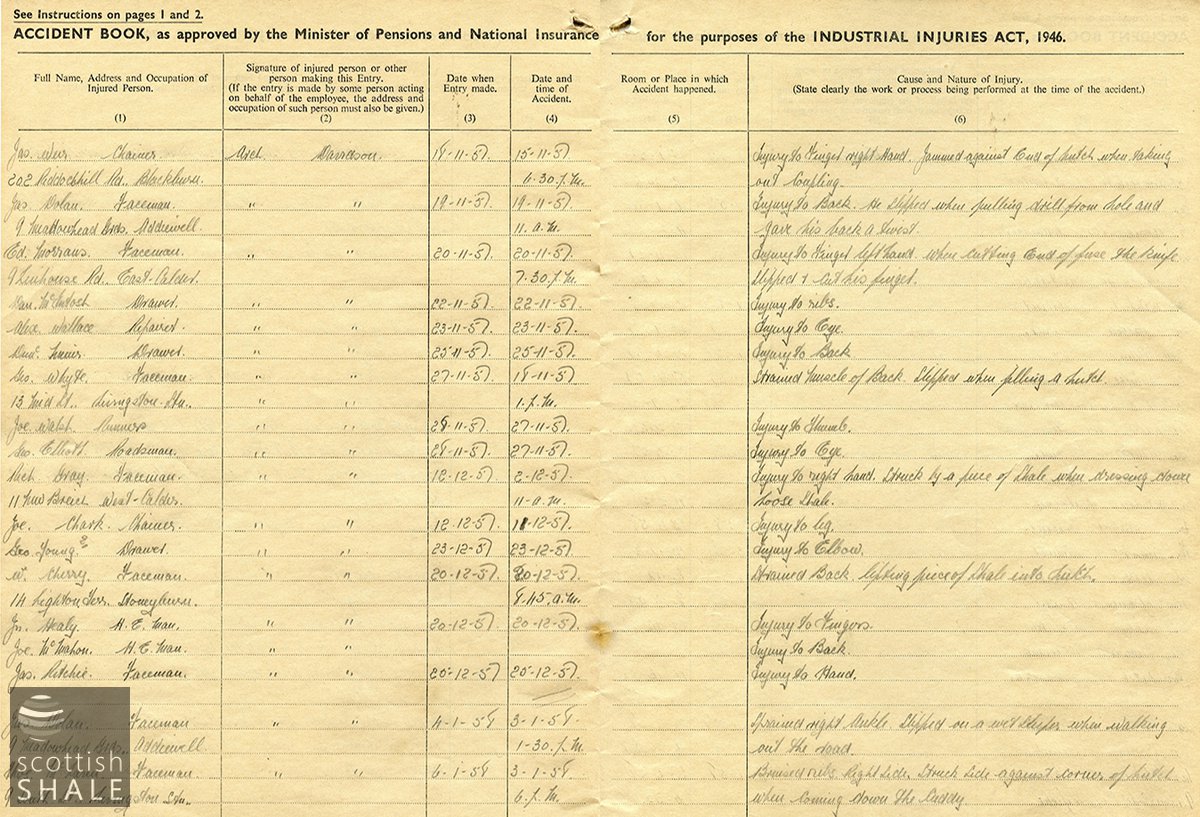 See Instructions on pages 1 and 2.
ACCIDENT BOOK, as approved by the Minister of Pensions and National Insurance for the purposes of the INDUSTRIAL INJURIES ACT, 1946.
Full Name, Address and Occupation of Injured Person. (1) Signature of injured person or other person making this Entry. (If the entry is made by some person acting on behalf of the employee, the address and occupation of such person must also be given.) (2) Date when Entry made. (3) Date and time of Accident. (4) Room or Place in which Accident happened. (5) Cause and Nature of Injury. (State clearly the work or process being performed at the time of the accident.) (6)
Jas. Weir Chainer Arch Davidson 18-11-57. 15-11-57. Injury to Finger right Hand. Jammed against End of hutch when taking
202 Riddochhill Rd. Blackburn. 6-30. p.m. out Coupling.
Jas Dolan. Faceman. " " 19-11-57. 19-11-57. Injury to Back. He slipped when pulling drill from hole and
9 Meadowhead Grds. Addiewell 11. a.m. gave his back a twist.
Ed. Morrans. Faceman. " " 20-11-57. 20-11-57. Injury to Finget left hand when cutting End of fuse the knife
9 Linhouse Rd., East-Calder. 7-30. p.m. slipped & cut his finget.
Dan. McIntosh Drawer. " " 22-11-57. 22-11-57. Injury to ribs.
Alex Wallace Repairer. " " 23-11-57. 23-11-57. Injury to Eye.
Drawer. " " 25-11-57. 25-11-57. Injury to Back
Geo. Whyte. Faceman. " " 27-11-57. 18-11-57. Strained Muscle of Back. Slipped when filling a hutch
13 Mid St., Livingston Stn., " " 1. p.m.
Joe Walsh " " 28-11-57. 27-11-57. Injury to Thumb.
Geo. Elliott. Roadsman. " " 28-11-57. 27-11-57. Injury to Eye.
Rich Gray Faceman. " " 12-12-57. 2-12-57. Injury to right hand. Struck by a piece of shale when dressing down
11 New Breich West-Calder. 11-a.m. loose shale.
Joe. Chark. Chainer. " " 12-12-57. 11-12-57. Injury to leg.
Geo. Young Drawer. " " 23-12-57. 23-12-57. Injury to Elbow.
W. Cherry. Faceman. " " 20-12-57. 20-12-57. Strained Back lifting piece of shale into hutch.
14 Lighton Terr. Stoneyburn. 8.45. a.m.
Jn. Healy. H.E. Man. " " 20-12-57. 20-12-57. Injury to Fingers.
Joe. McMahon. H.E. Man. Injury to Back.
Jas. Ritchie. Faceman. " " 20-12-57 20-12-57. Injury to Hand.
Jas Dolan. Faceman " " 4-1-58 3-1-58. Strained right Ankle. Slipped on a wet sleeper when walking
9 Meadowhead Grds., Addiewell 1-30. p.m. out the road
Faceman " " 6-1-58 3-1-58. Bruised ribs. Right Side. Struck Side against corner of hutch
Livingston Stn. 6. p.m. when coming down the Cuddy.
scottish
SHALE